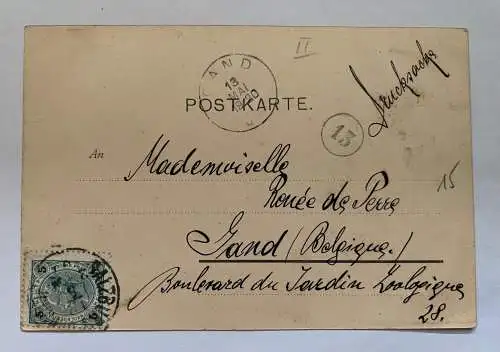 GAND
13
MAI
1900
II
Drucksache
POSTKARTE.
13
An
Mademoiselle
Renée de Perre
15
Gand (Belgique.)
Boulevard du Jardin Zoologique
28.
SALZBURG
5